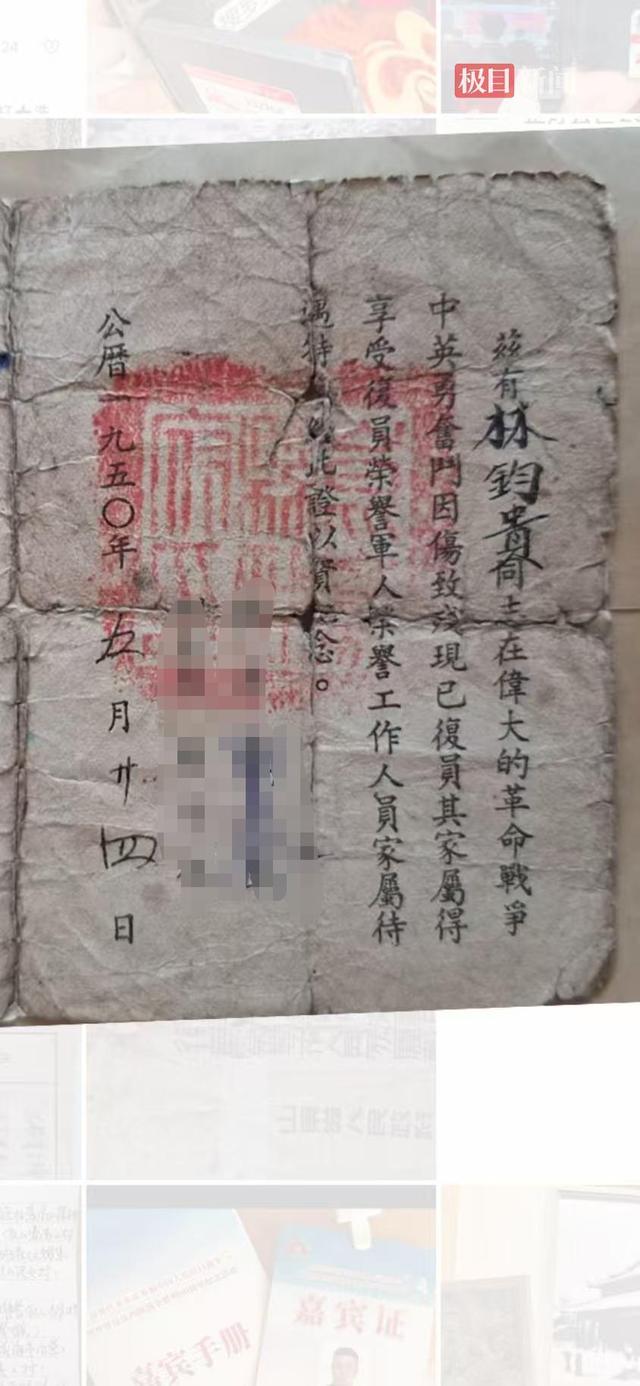 极目新闻
茲有林鈞貴同志在偉大的革命戰爭
中英勇奮鬥因傷致殘現已復員其家屬得
享受復員榮譽軍人榮譽工作人員家屬待
遇特此證以資念。
公曆一九五〇年五月廿四日
嘉宾手册
嘉宾证